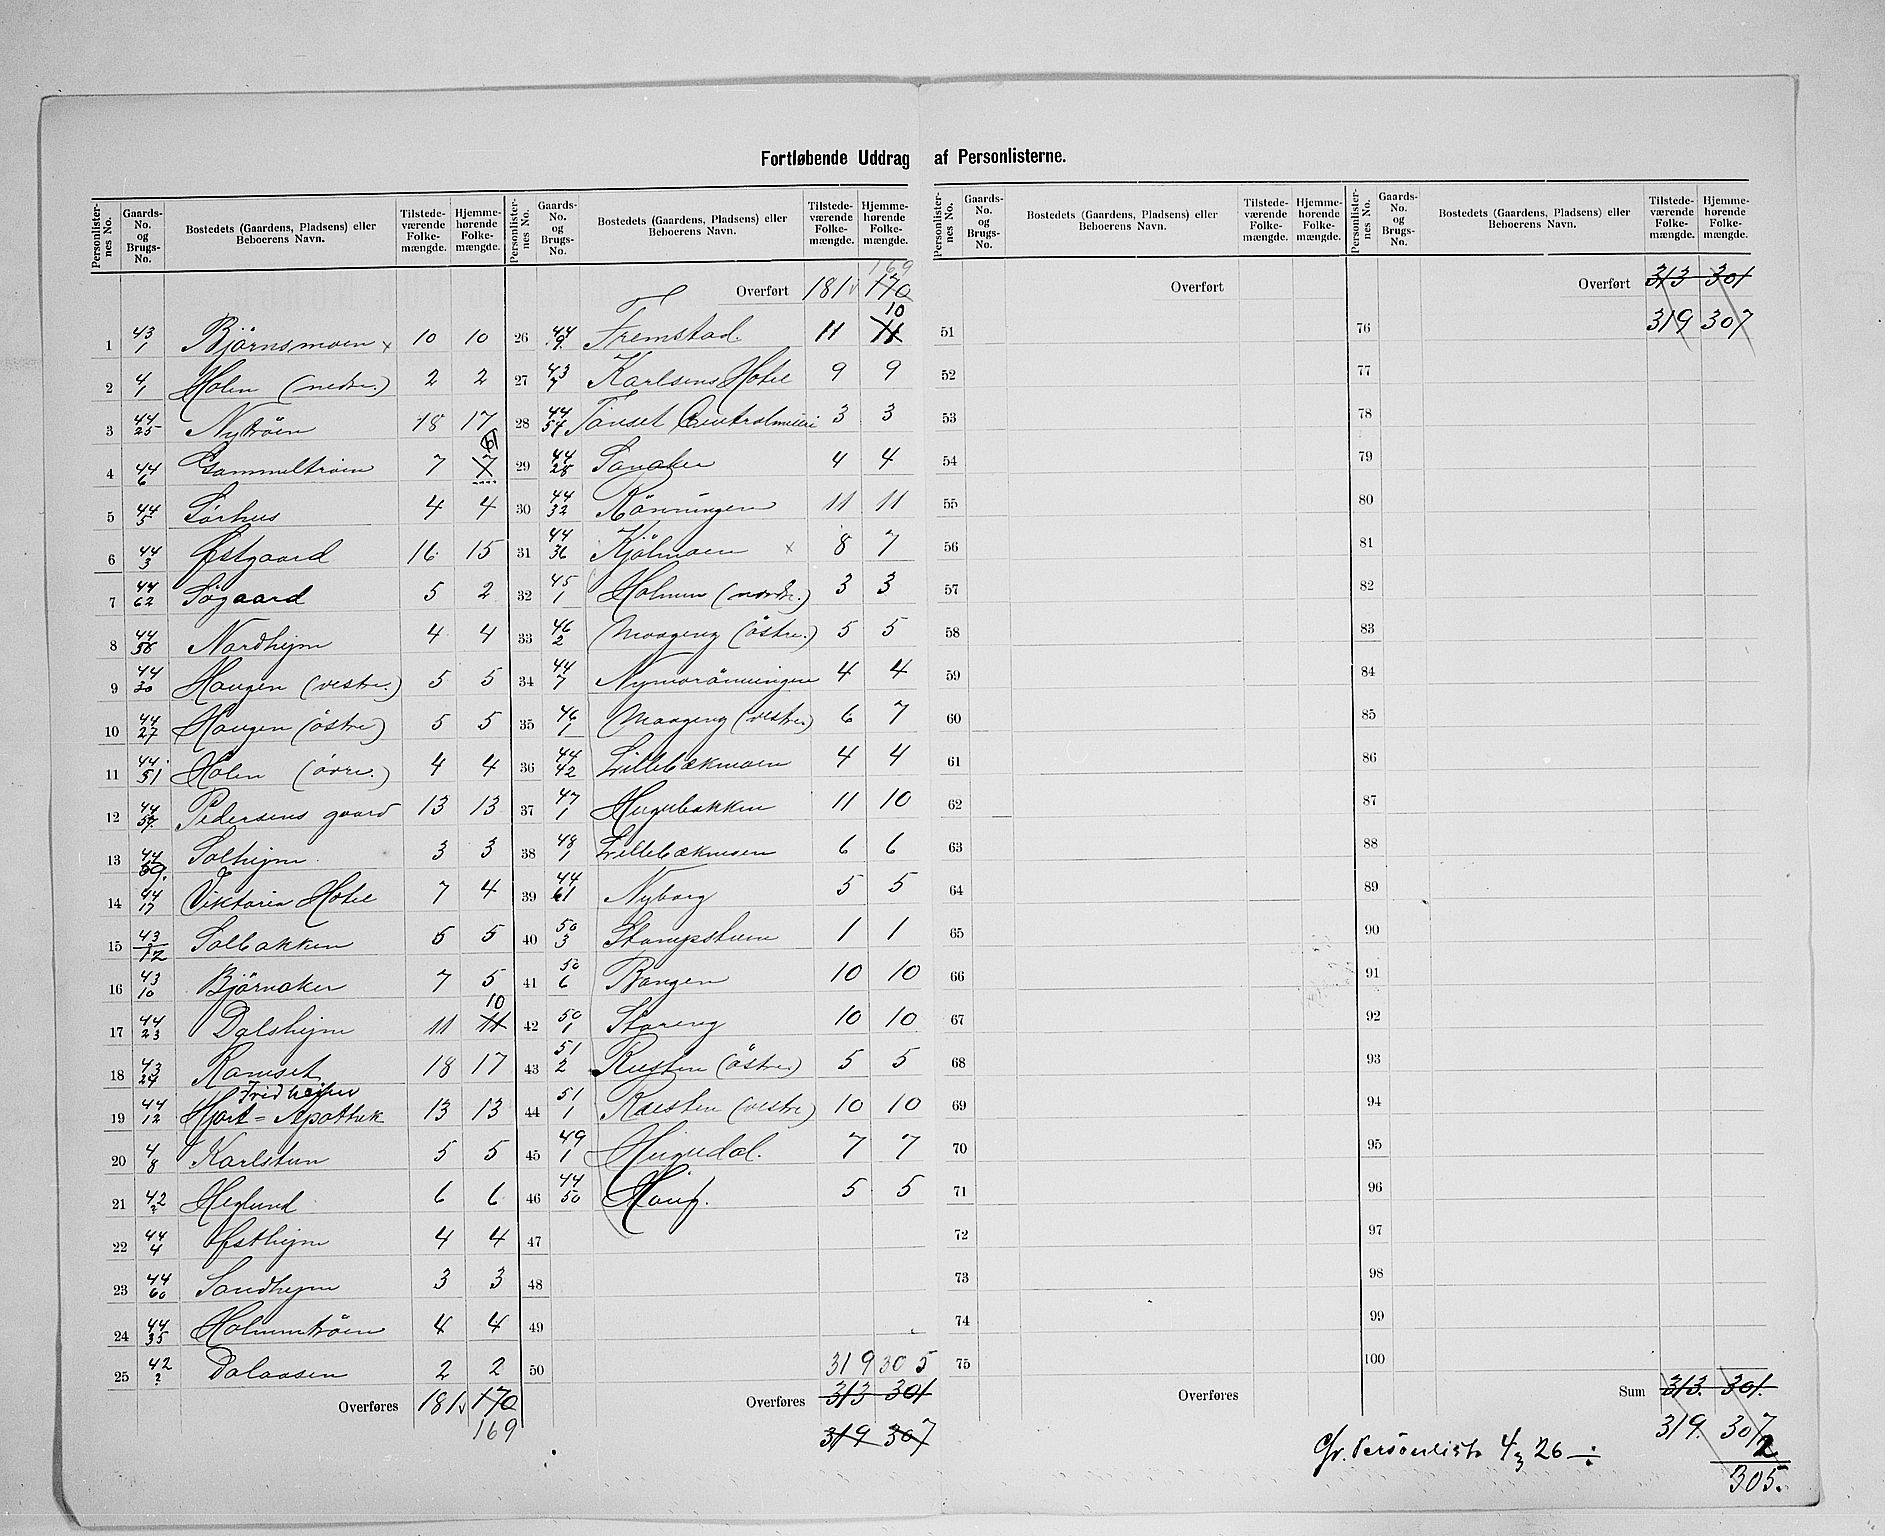 Fortløbende Uddrag af Personlisterne.
Personlister-nes No. | Gaards-No. og Brugs-No. | Bostedets (Gaardens, Pladsens) eller Beboerens Navn. | Tilstede-værende Folke-mængde. | Hjemme-hørende Folke-mængde.
1 43/1 Björnsmoen x 10 10
2 4/1 Holen (nedre.) 2 2
3 44/25 Nytröen 18 17
4 44/6 Gammeltröen 7 7 6
5 44/5 Sørhus 4 4
6 44/3 Østgaard 16 15
7 44/62 Søgaard 5 2
8 44/58 Nordhejm 4 4
9 44/30 Haugen (vestre.) 5 5
10 44/27 Haugen (östre) 5 5
11 44/51 Holen (övre.) 4 4
12 44/57. Pedersens gaard 13 13
13 44/59. Solhejm. 3 3
14 44/17 Viktoria Hotel 7 4
15 43/12 Solbakken 5 5
16 43/10 Björnaker 7 5
17 44/23 Dalshejm 11 11 10
18 43/24 Ramset 18 17
Fridheim
19 44/12 Hjort=Apothek 13 13
20 4/8 Karlstun 5 5
21 42/2 Heglund 6 6
22 44/4 Østhejm 4 4
23 44/60 Sandhejm 3 3
24 44/35 Holmentröen 4 4
25 42/2 Dalaasen 2 2
Overføres 181 v 170
169
Personlister-nes No. | Gaards-No. og Brugs-No. | Bostedets (Gaardens, Pladsens) eller Beboerens Navn. | Tilstede-værende Folke-mængde. | Hjemme-hørende Folke-mængde.
169
Overført 181 v 170
26 44/9. Fremstad. 11 11 10
27 43/7 Karlsens Hotel 9 9
28 44/54 Tönset Centralmeieri 3 3
29 44/28 Sanaker 4 4
30 44/32 Rönningen 11 11
31 44/36 Kjölmoen x 8 7
32 45/1 Holmen (nordre.) 3 3
33 46/2 Moageng (östre.) 5 5
34 44/7 Nymorönningen 4 4
35 46/1 Moageng (vestre.) 6 7
36 44/42 Lillebækmoen 4 4
37 47/1 Hegubakken 11 10
38 48/1 Lillebækmoen 6 6
39 44/61 Nyborg 5 5
40 50/3 Stampstuen 1 1
41 50/6 Bangen 10 10
42 50/1 Storeng 10 10
43 51/2 Rusten (östre.) 5 5
44 51/1 Rusten (vestre) 10 10
45 49/1 Hegudal. 7 7
46 44/50 Hauf. 5 5
47
48
49
50 319 305
Overføres 313 301
319 307
Personlister-nes No. | Gaards-No. og Brugs-No. | Bostedets (Gaardens, Pladsens) eller Beboerens Navn. | Tilstede-værende Folke-mængde. | Hjemme-hørende Folke-mængde.
Overført
51
52
53
54
55
56
57
58
59
60
61
62
63
64
65
66
67
68
69
70
71
72
73
74
75
Overføres
Personlister-nes No. | Gaards-No. og Brugs-No. | Bostedets (Gaardens, Pladsens) eller Beboerens Navn. | Tilstede-værende Folke-mængde. | Hjemme-hørende Folke-mængde.
Overført 313 301
76 319 307
77
78
79
80
81
82
83
84
85
86
87
88
89
90
91
92
93
94
95
96
97
98
99
100
Sum 313. 301.
319. 307
Cfr. Personliste 4, 26 ÷ 2
305.